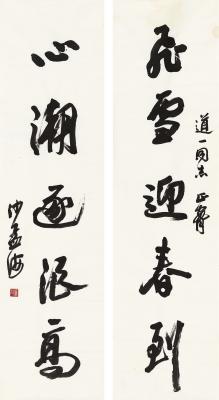 飛雪迎春到
道一同志正腕
心潮逐浪高
沙孟海